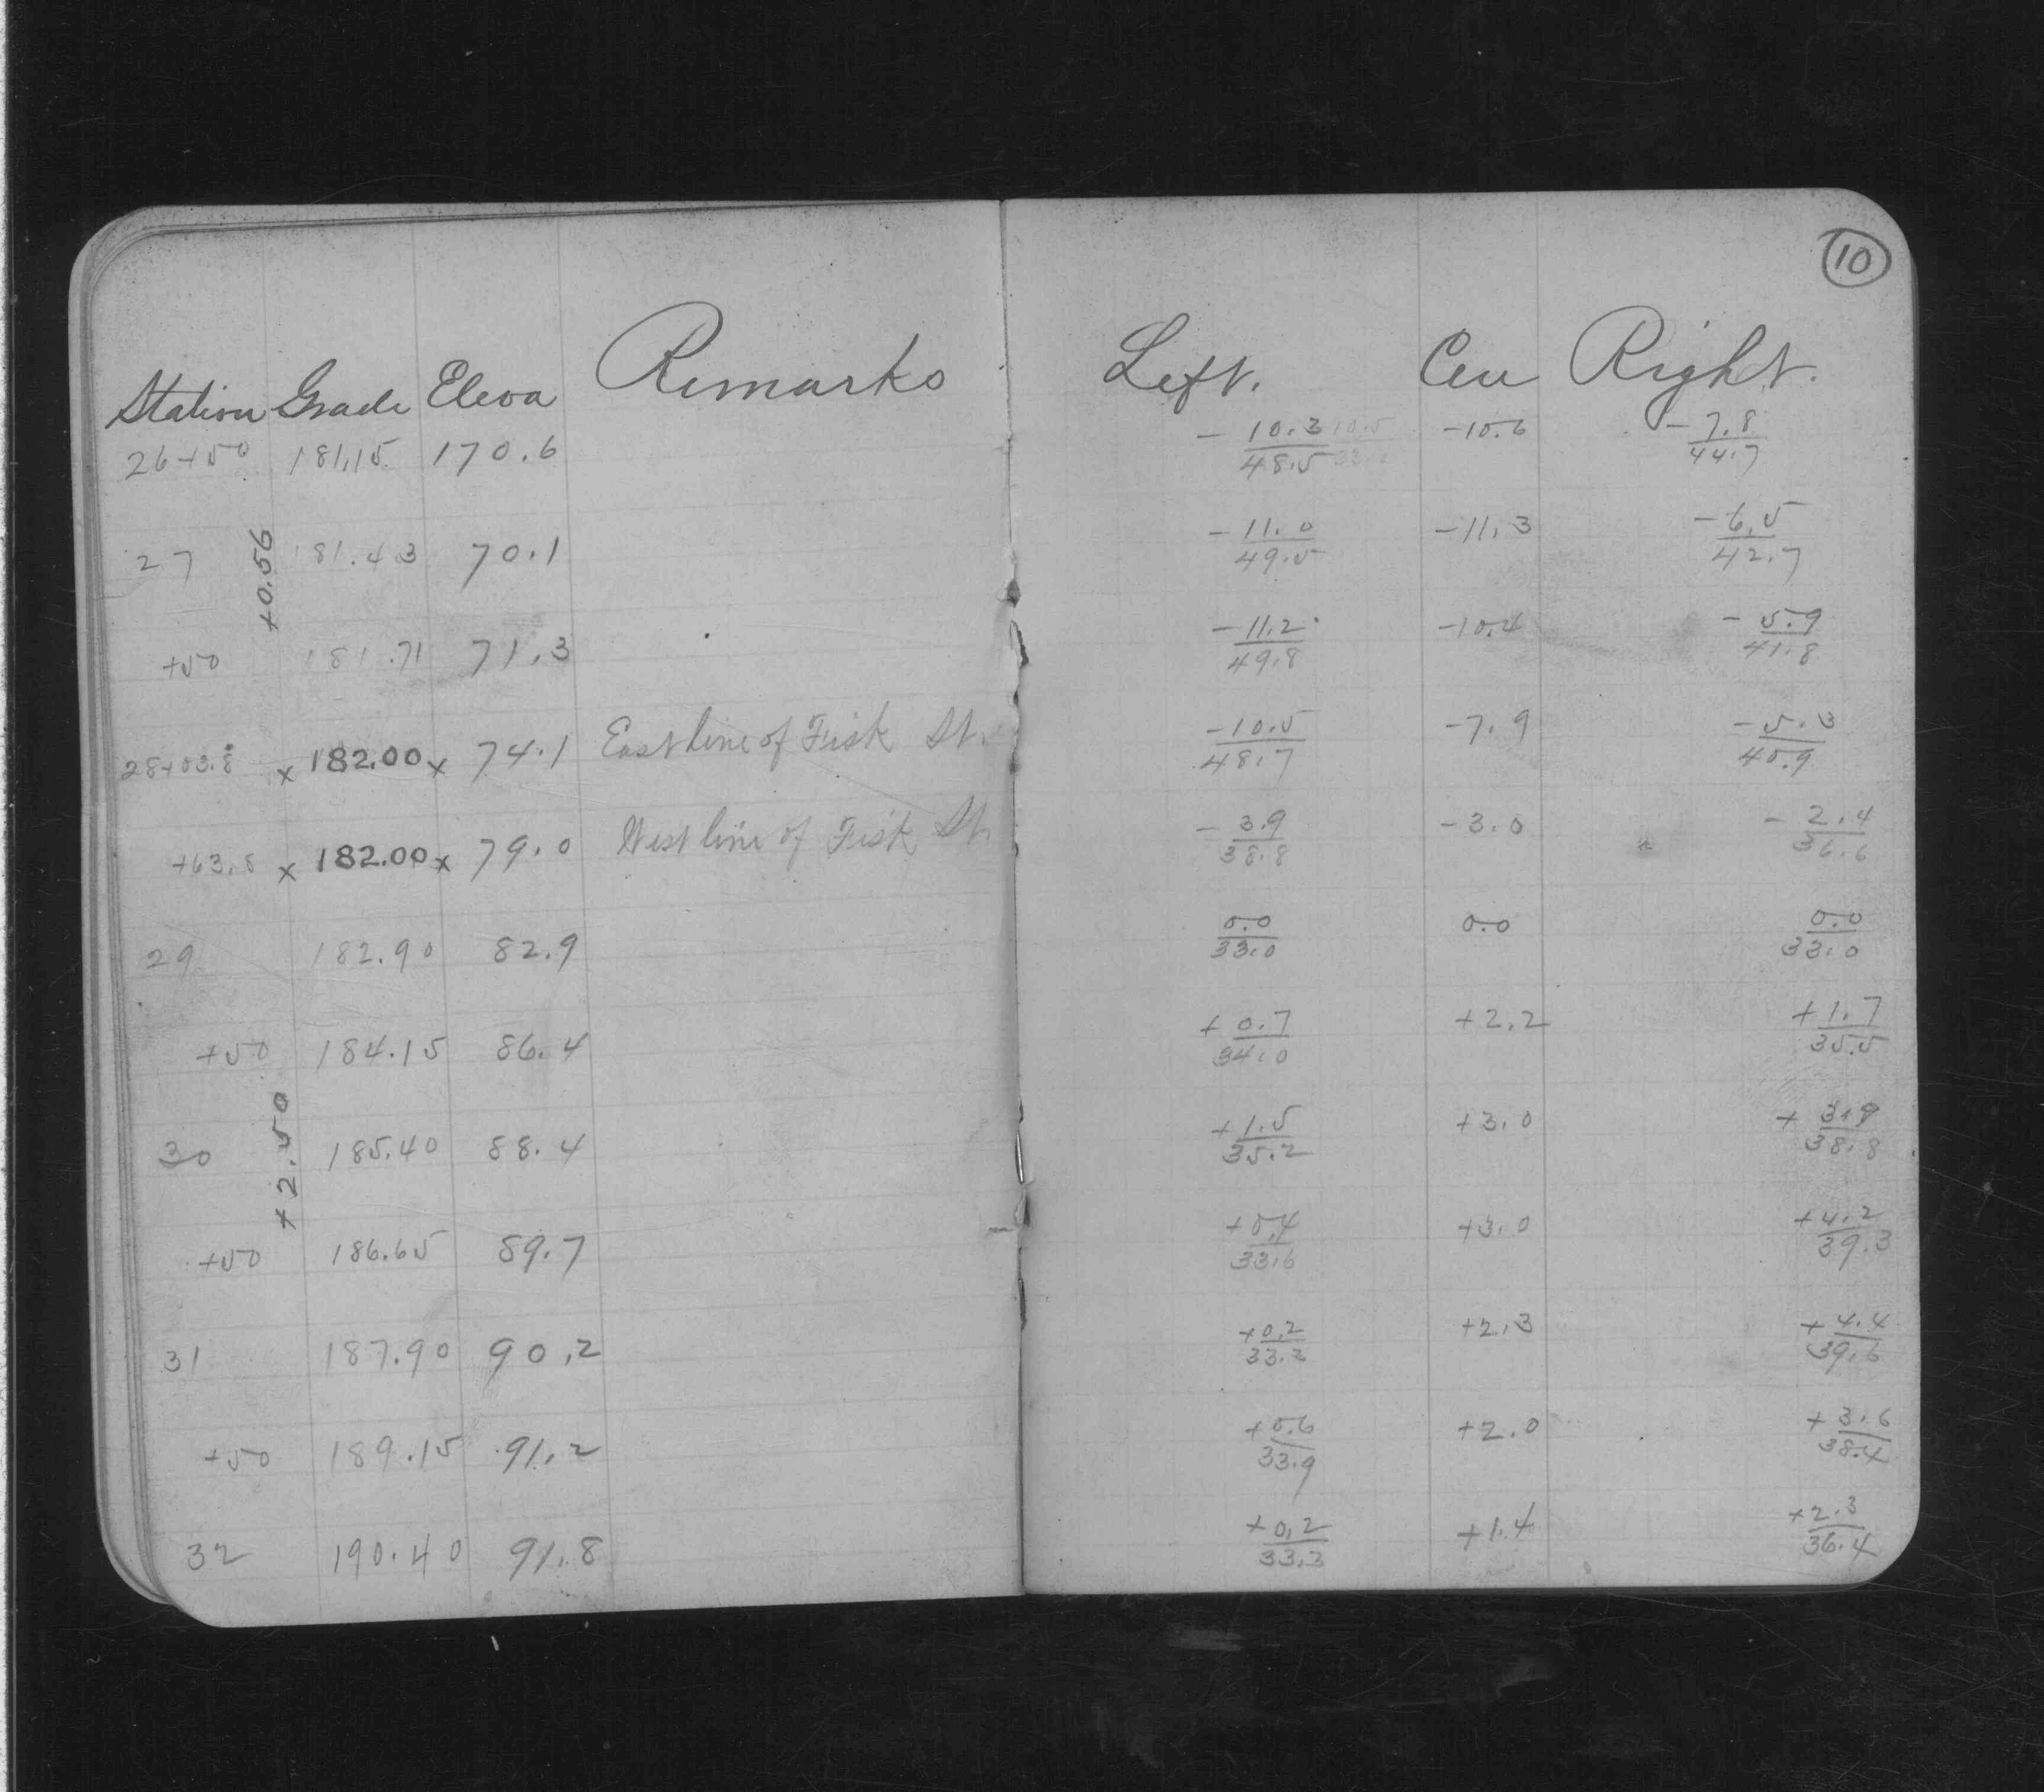 10
Station Grade Eleva Remarks Left. Cen Right.
26+50 181.15 170.6 - 10.3/48.5 -10.6 - 7.8/44.7
27 181.43 70.1 - 11.0/49.5 -11.3 - 6.5/42.7
+0.56
+50 181.71 71.3 - 11.2/49.8 -10.4 - 5.9/41.8
28+03.8 x 182.00 x 74.1 East line of Fisk St. - 10.5/48.7 -7.9 - 5.3/40.9
+63.8 x 182.00 x 79.0 West line of Fisk St. - 3.9/38.8 -3.0 - 2.4/36.6
29 182.90 82.9 0.0/33.0 0.0 0.0/33.0
+50 184.15 86.4 + 0.7/34.0 +2.2 + 1.7/35.5
30 185.40 88.4 + 1.5/35.2 +3.0 + 3.9/38.8
+2.50
+50 186.65 89.7 + 0.4/33.6 +3.0 + 4.2/39.3
31 187.90 90.2 + 0.2/33.3 +2.3 + 4.4/39.6
+50 189.15 91.2 + 0.6/33.9 +2.0 + 3.6/38.4
32 190.40 91.8 + 0.2/33.3 +1.4 + 2.3/36.4